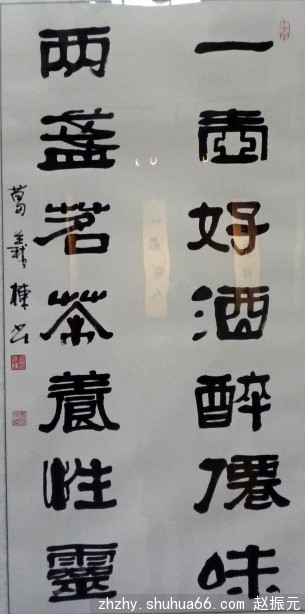 一壶好酒醉僊味
两盏茗茶養性靈
葛義樟书
zhzhy.shuhua66.com 赵振元